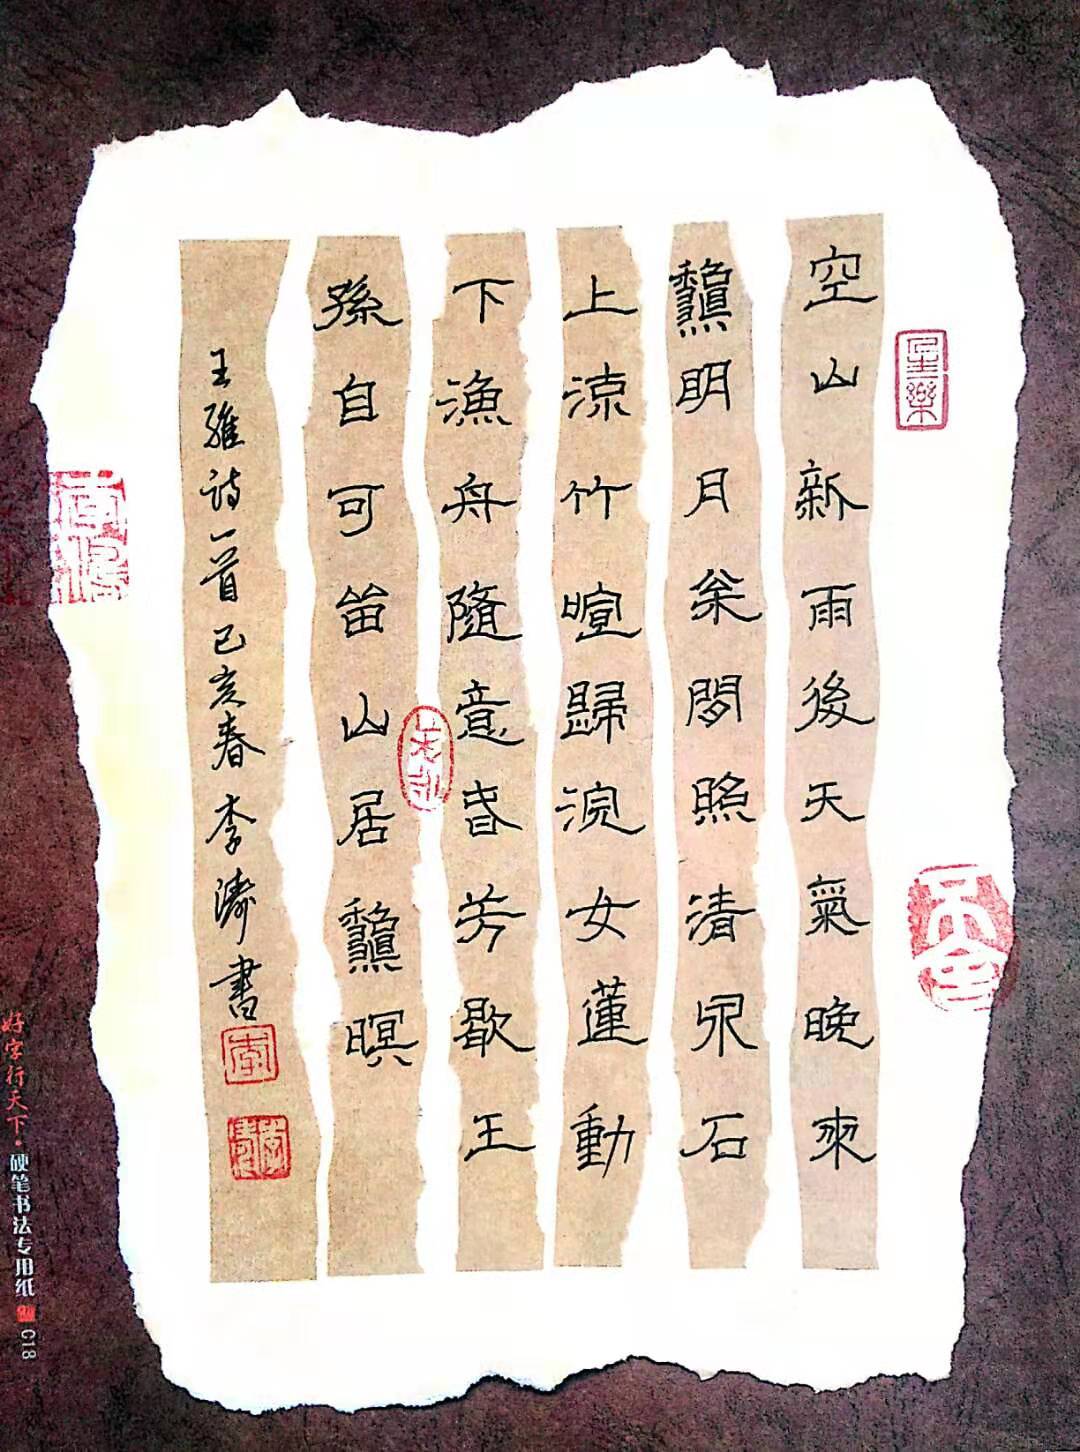 空山新雨後天氣晚來
龝明月枀間照清泉石
上涼竹喧歸浣女蓮動
下漁舟隨意春芳歇王
孫自可畱山居龝暝
王維詩一首己亥春李濤書
好字行天下·硬笔书法专用纸
C18